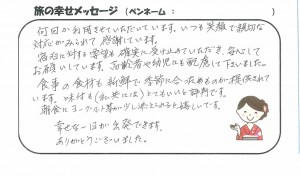 旅の幸せメッセージ (ペンネーム : )
何回か利用させていただいています。いつも笑顔で親切な
対応がみられて 感謝しています。
宿泊に対する希望も確実に受け止めていただき、安心して
お願いしています。高齢者や幼児にも配慮して下さいました。
食事の食材も新鮮で季節に合ったものが提供されて
います。味付も(私共には)とてもいいと評判です。
朝食にヨーグルト等が少し添えられると嬉しいです。
幸せな一日が出発できます。
ありがとうございました。